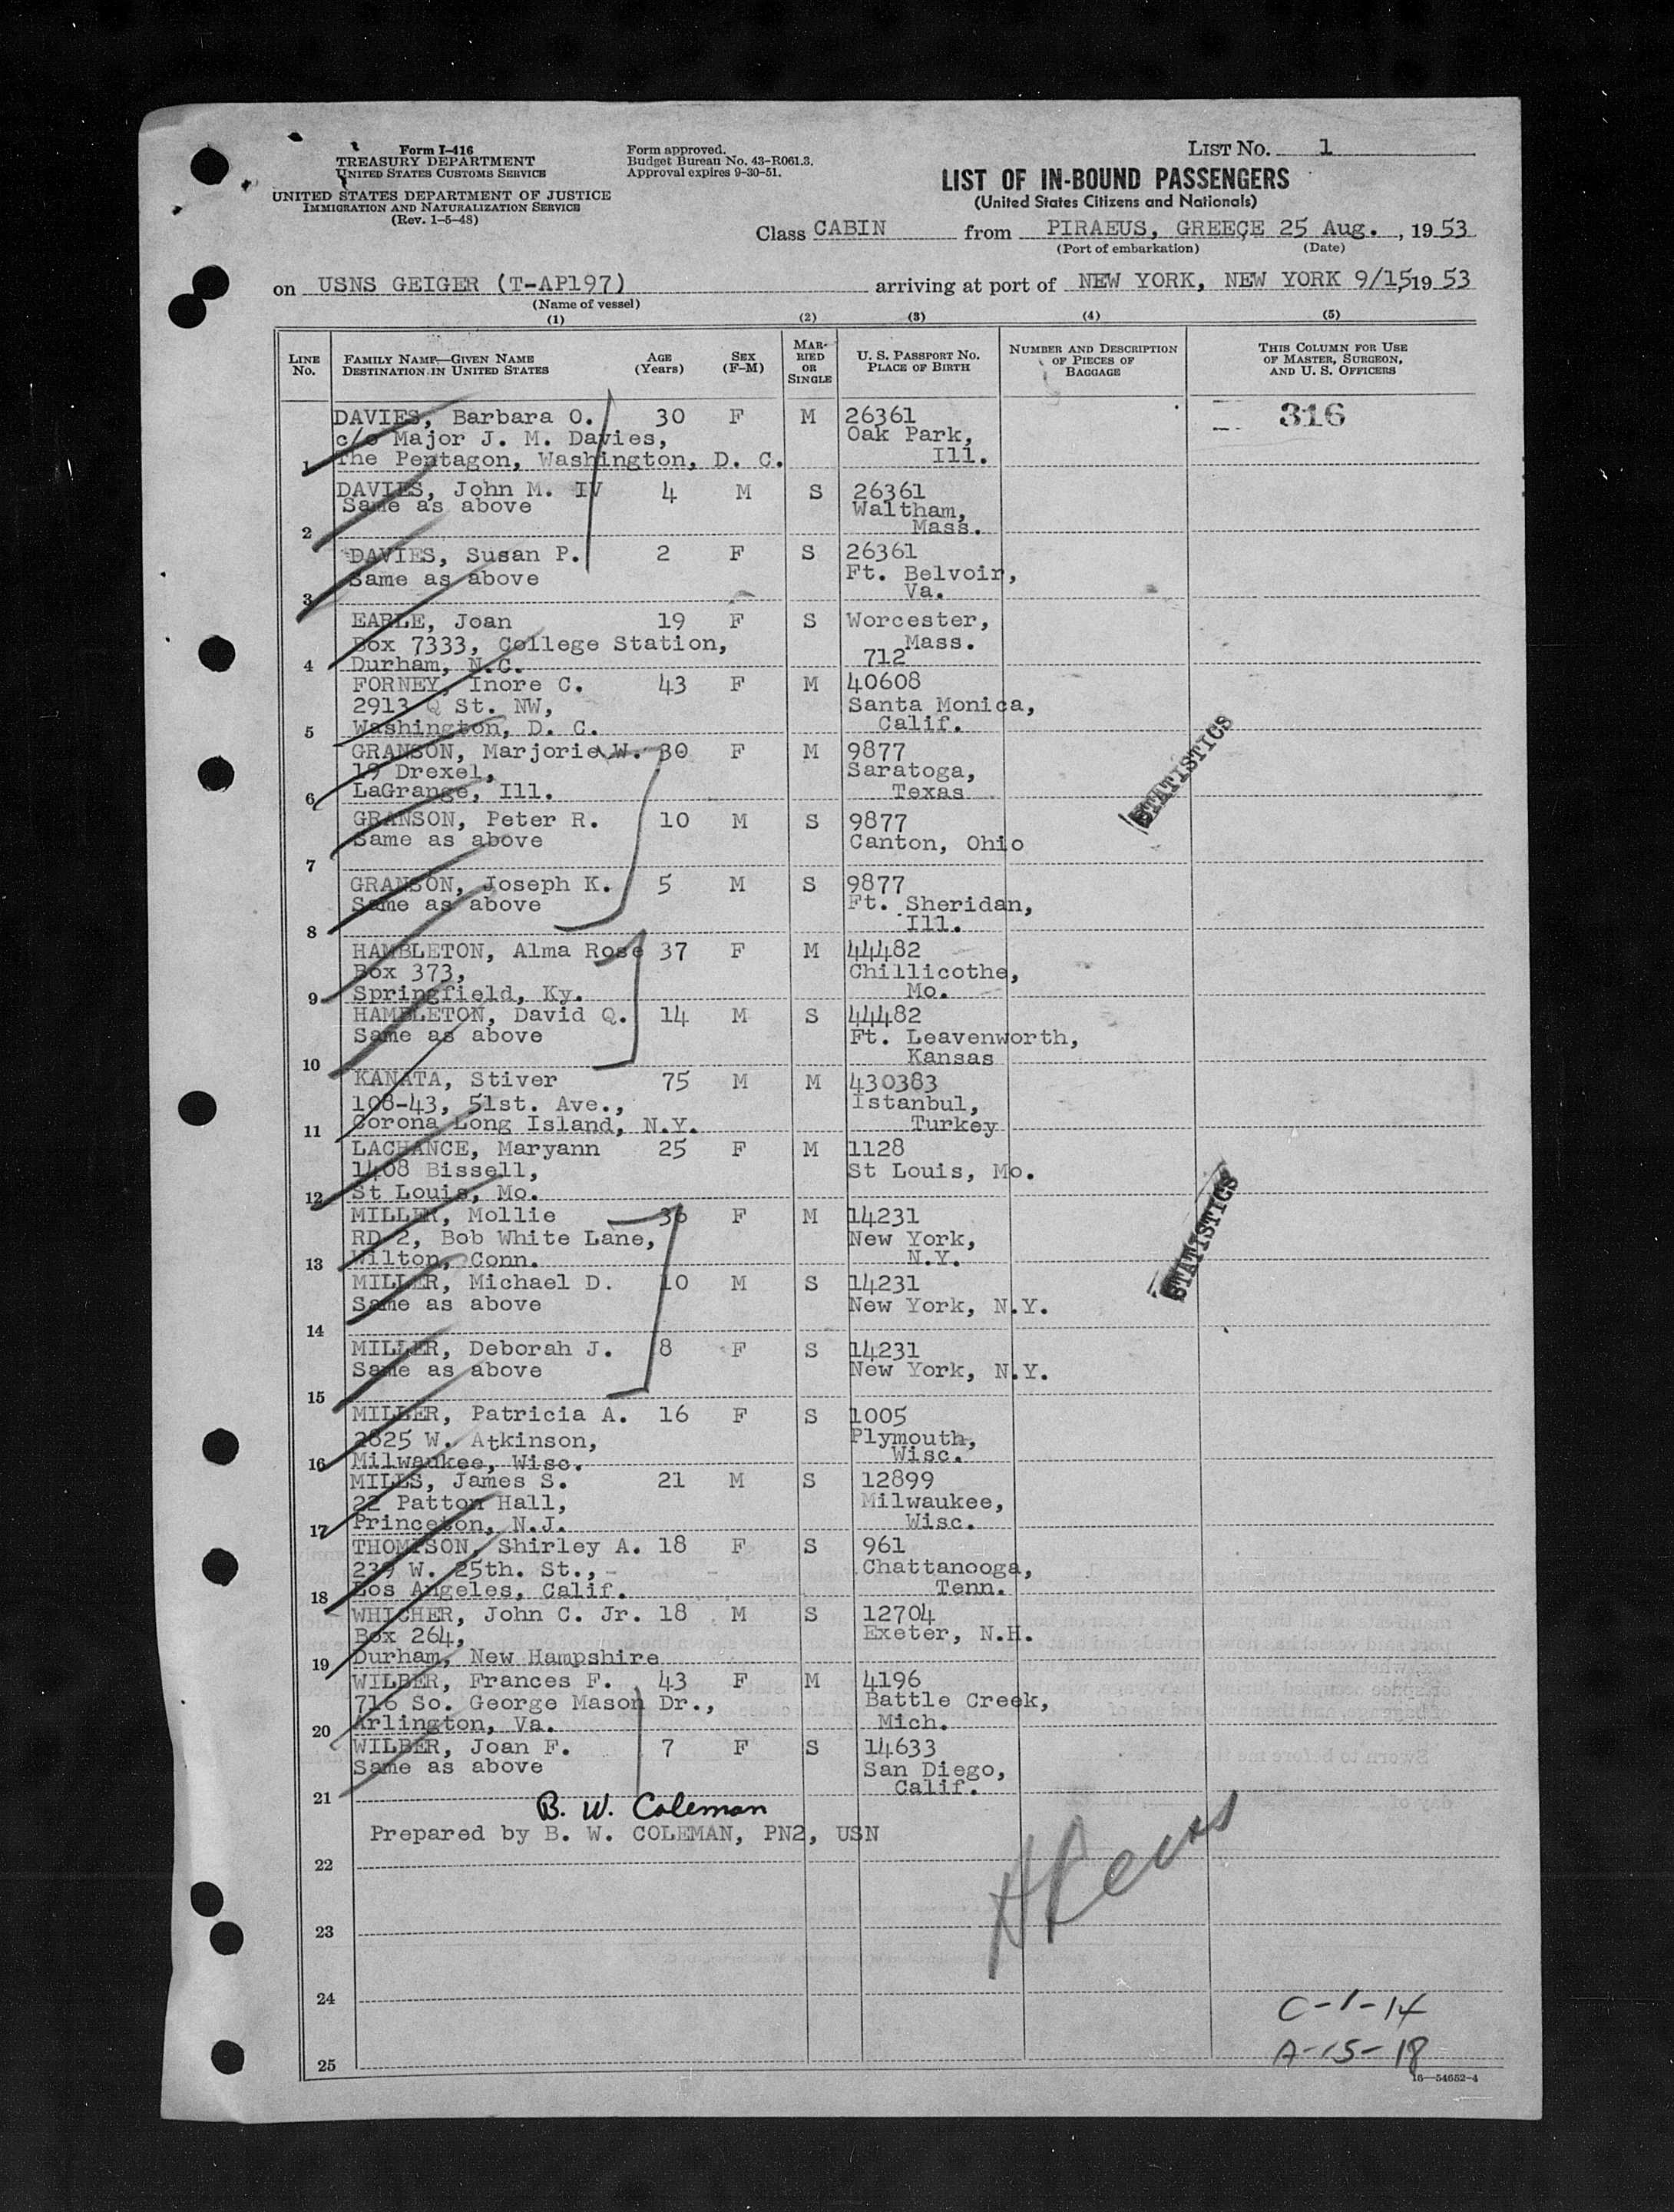 Form I-416
TREASURY DEPARTMENT
UNITED STATES CUSTOMS SERVICE
UNITED STATES DEPARTMENT OF JUSTICE
IMMIGRATION AND NATURALIZATION SERVICE
(Rev. 1-5-48)
Form approved.
Budget Bureau No. 43-R061.3.
Approval expires 9-30-51.
LIST NO. 1
LIST OF IN-BOUND PASSENGERS
(United States Citizens and Nationals)
Class CABIN from PIRAEUS, GREECE 25 Aug., 19 53
(Port of embarkation) (Date)
on USNS GEIGER (T-AP197) arriving at port of NEW YORK, NEW YORK 9/15, 19 53
(Name of vessel)
(1) (2) (3) (4) (5)
LINE NO. FAMILY NAME—GIVEN NAME DESTINATION IN UNITED STATES AGE (Years) SEX (F-M) MARRIED OR SINGLE U. S. PASSPORT NO. PLACE OF BIRTH NUMBER AND DESCRIPTION OF PIECES OF BAGGAGE THIS COLUMN FOR USE OF MASTER, SURGEON, AND U. S. OFFICERS
DAVIES, Barbara O. 30 F M 26361 316
c/o Major J. M. Davies, Oak Park,
1 The Pentagon, Washington, D. C. Ill.
DAVIES, John M. IV 4 M S 26361
Same as above Waltham,
2 Mass.
DAVIES, Susan P. 2 F S 26361
Same as above Ft. Belvoir,
3 Va.
EARLE, Joan 19 F S Worcester,
Box 7333, College Station, Mass.
4 Durham, N.C. 712
FORNEY, Inore C. 43 F M 40608
2913 Q St. NW, Santa Monica,
5 Washington, D. C. Calif.
GRANSON, Marjorie W. 30 F M 9877
19 Drexel, Saratoga,
6 LaGrange, Ill. Texas
STATISTICS
GRANSON, Peter R. 10 M S 9877
Same as above Canton, Ohio
7
GRANSON, Joseph K. 5 M S 9877
Same as above Ft. Sheridan,
8 Ill.
HAMBLETON, Alma Rose 37 F M 44482
Box 373, Chillicothe,
9 Springfield, Ky. Mo.
HAMBLETON, David Q. 14 M S 44482
Same as above Ft. Leavenworth,
10 Kansas
KANATA, Stiver 75 M M 430383
108-43, 51st. Ave., Istanbul,
11 Corona Long Island, N.Y. Turkey
LACHANCE, Maryann 25 F M 1128
1408 Bissell, St Louis, Mo.
12 St Louis, Mo.
STATISTICS
MILLER, Mollie 36 F M 14231
RD 2, Bob White Lane, New York,
13 Wilton, Conn. N.Y.
MILLER, Michael D. 10 M S 14231
Same as above New York, N.Y.
14
MILLER, Deborah J. 8 F S 14231
Same as above New York, N.Y.
15
MILLER, Patricia A. 16 F S 1005
2825 W. Atkinson, Plymouth,
16 Milwaukee, Wisc. Wisc.
MILES, James S. 21 M S 12899
22 Patton Hall, Milwaukee,
17 Princeton, N.J. Wisc.
THOMPSON, Shirley A. 18 F S 961
239 W. 25th. St., Chattanooga,
18 Los Angeles, Calif. Tenn.
WHICHER, John C. Jr. 18 M S 12704
Box 264, Exeter, N.H.
19 Durham, New Hampshire
WILBER, Frances F. 43 F M 4196
716 So. George Mason Dr., Battle Creek,
20 Arlington, Va. Mich.
WILBER, Joan F. 7 F S 14633
Same as above San Diego,
21 Calif.
B. W. Coleman
Prepared by B. W. COLEMAN, PN2, USN
22
23
24
C-1-14
A-15-18
25
16—54652-4